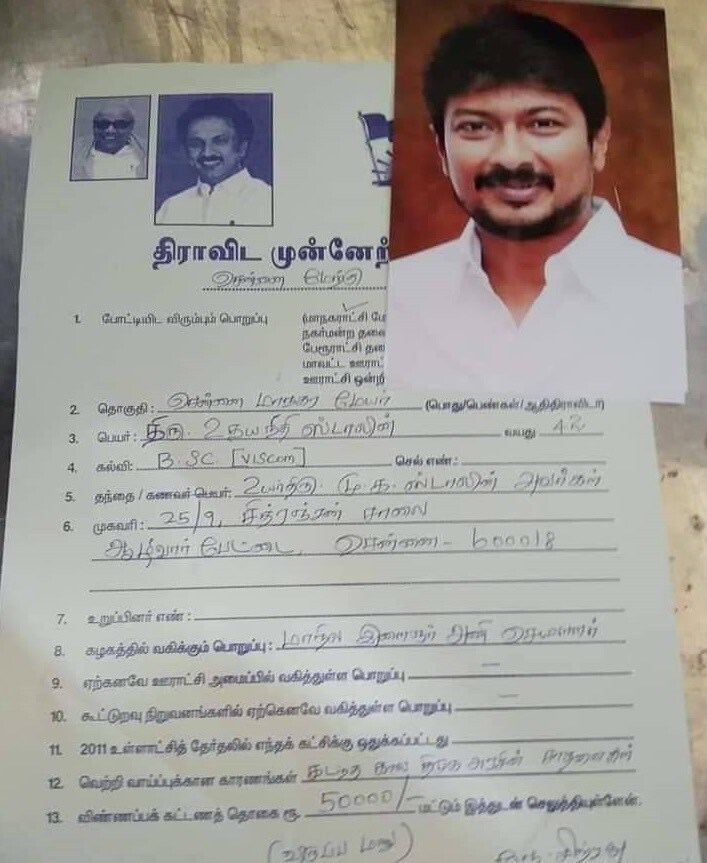 திராவிட முன்னேற்
சென்னை மேற்கு
1. போட்டியிட விரும்பும் பொறுப்பு
(மாநகராட்சி மே
நகர்மன்ற தலை
பேரூராட்சி தலை
மாவட்ட ஊராட்
ஊராட்சி ஒன்றி
2. தொகுதி : சென்னை மாநகர மேயர் (பொது/பெண்கள்/ஆதிதிராவிடர்)
3. பெயர் : திரு. உதயநிதி ஸ்டாலின் வயது 42
4. கல்வி : B.SC. [VISCOM] செல் எண் :
5. தந்தை / கணவர் பெயர் : உயர்திரு. மு.க. ஸ்டாலின் அவர்கள்
6. முகவரி : 25/9, சித்ரஞ்சன் சாலை
ஆழ்வார் பேட்டை, சென்னை - 600018
7. உறுப்பினர் எண் :
8. கழகத்தில் வகிக்கும் பொறுப்பு : மாநில இளைஞர் அணி செயலாளர்
9. ஏற்கனவே ஊராட்சி அமைப்பில் வகித்துள்ள பொறுப்பு —
10. கூட்டுறவு நிறுவனங்களில் ஏற்கெனவே வகித்துள்ள பொறுப்பு —
11. 2011 உள்ளாட்சித் தேர்தலில் எந்தக் கட்சிக்கு ஒதுக்கப்பட்டது
12. வெற்றி வாய்ப்புக்கான காரணங்கள் கடந்த கால திமுக அரசின் சாதனைகள்
13. விண்ணப்பக் கட்டணத் தொகை ரூ. 50000/- மட்டும் இத்துடன் செலுத்தியுள்ளேன்.
(விருப்ப மனு)